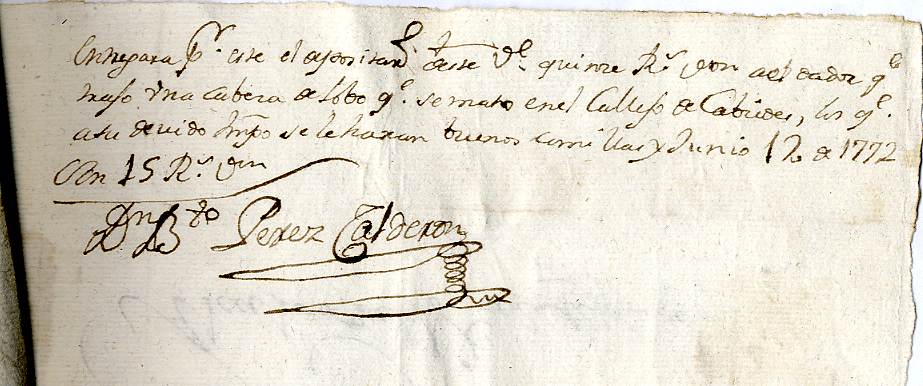 Entregara pr. este el depositario deste Ve. quinze Rs. von ael dador qe.
trajo vna cabeza de lobo qe. se mato en el Callejo de Cabiedes, los qe.
a su devido tmpo se le haran buenos Comillas y Junio 12 de 1772
Son 15 Rs. von
Dn Bto Perez Calderon